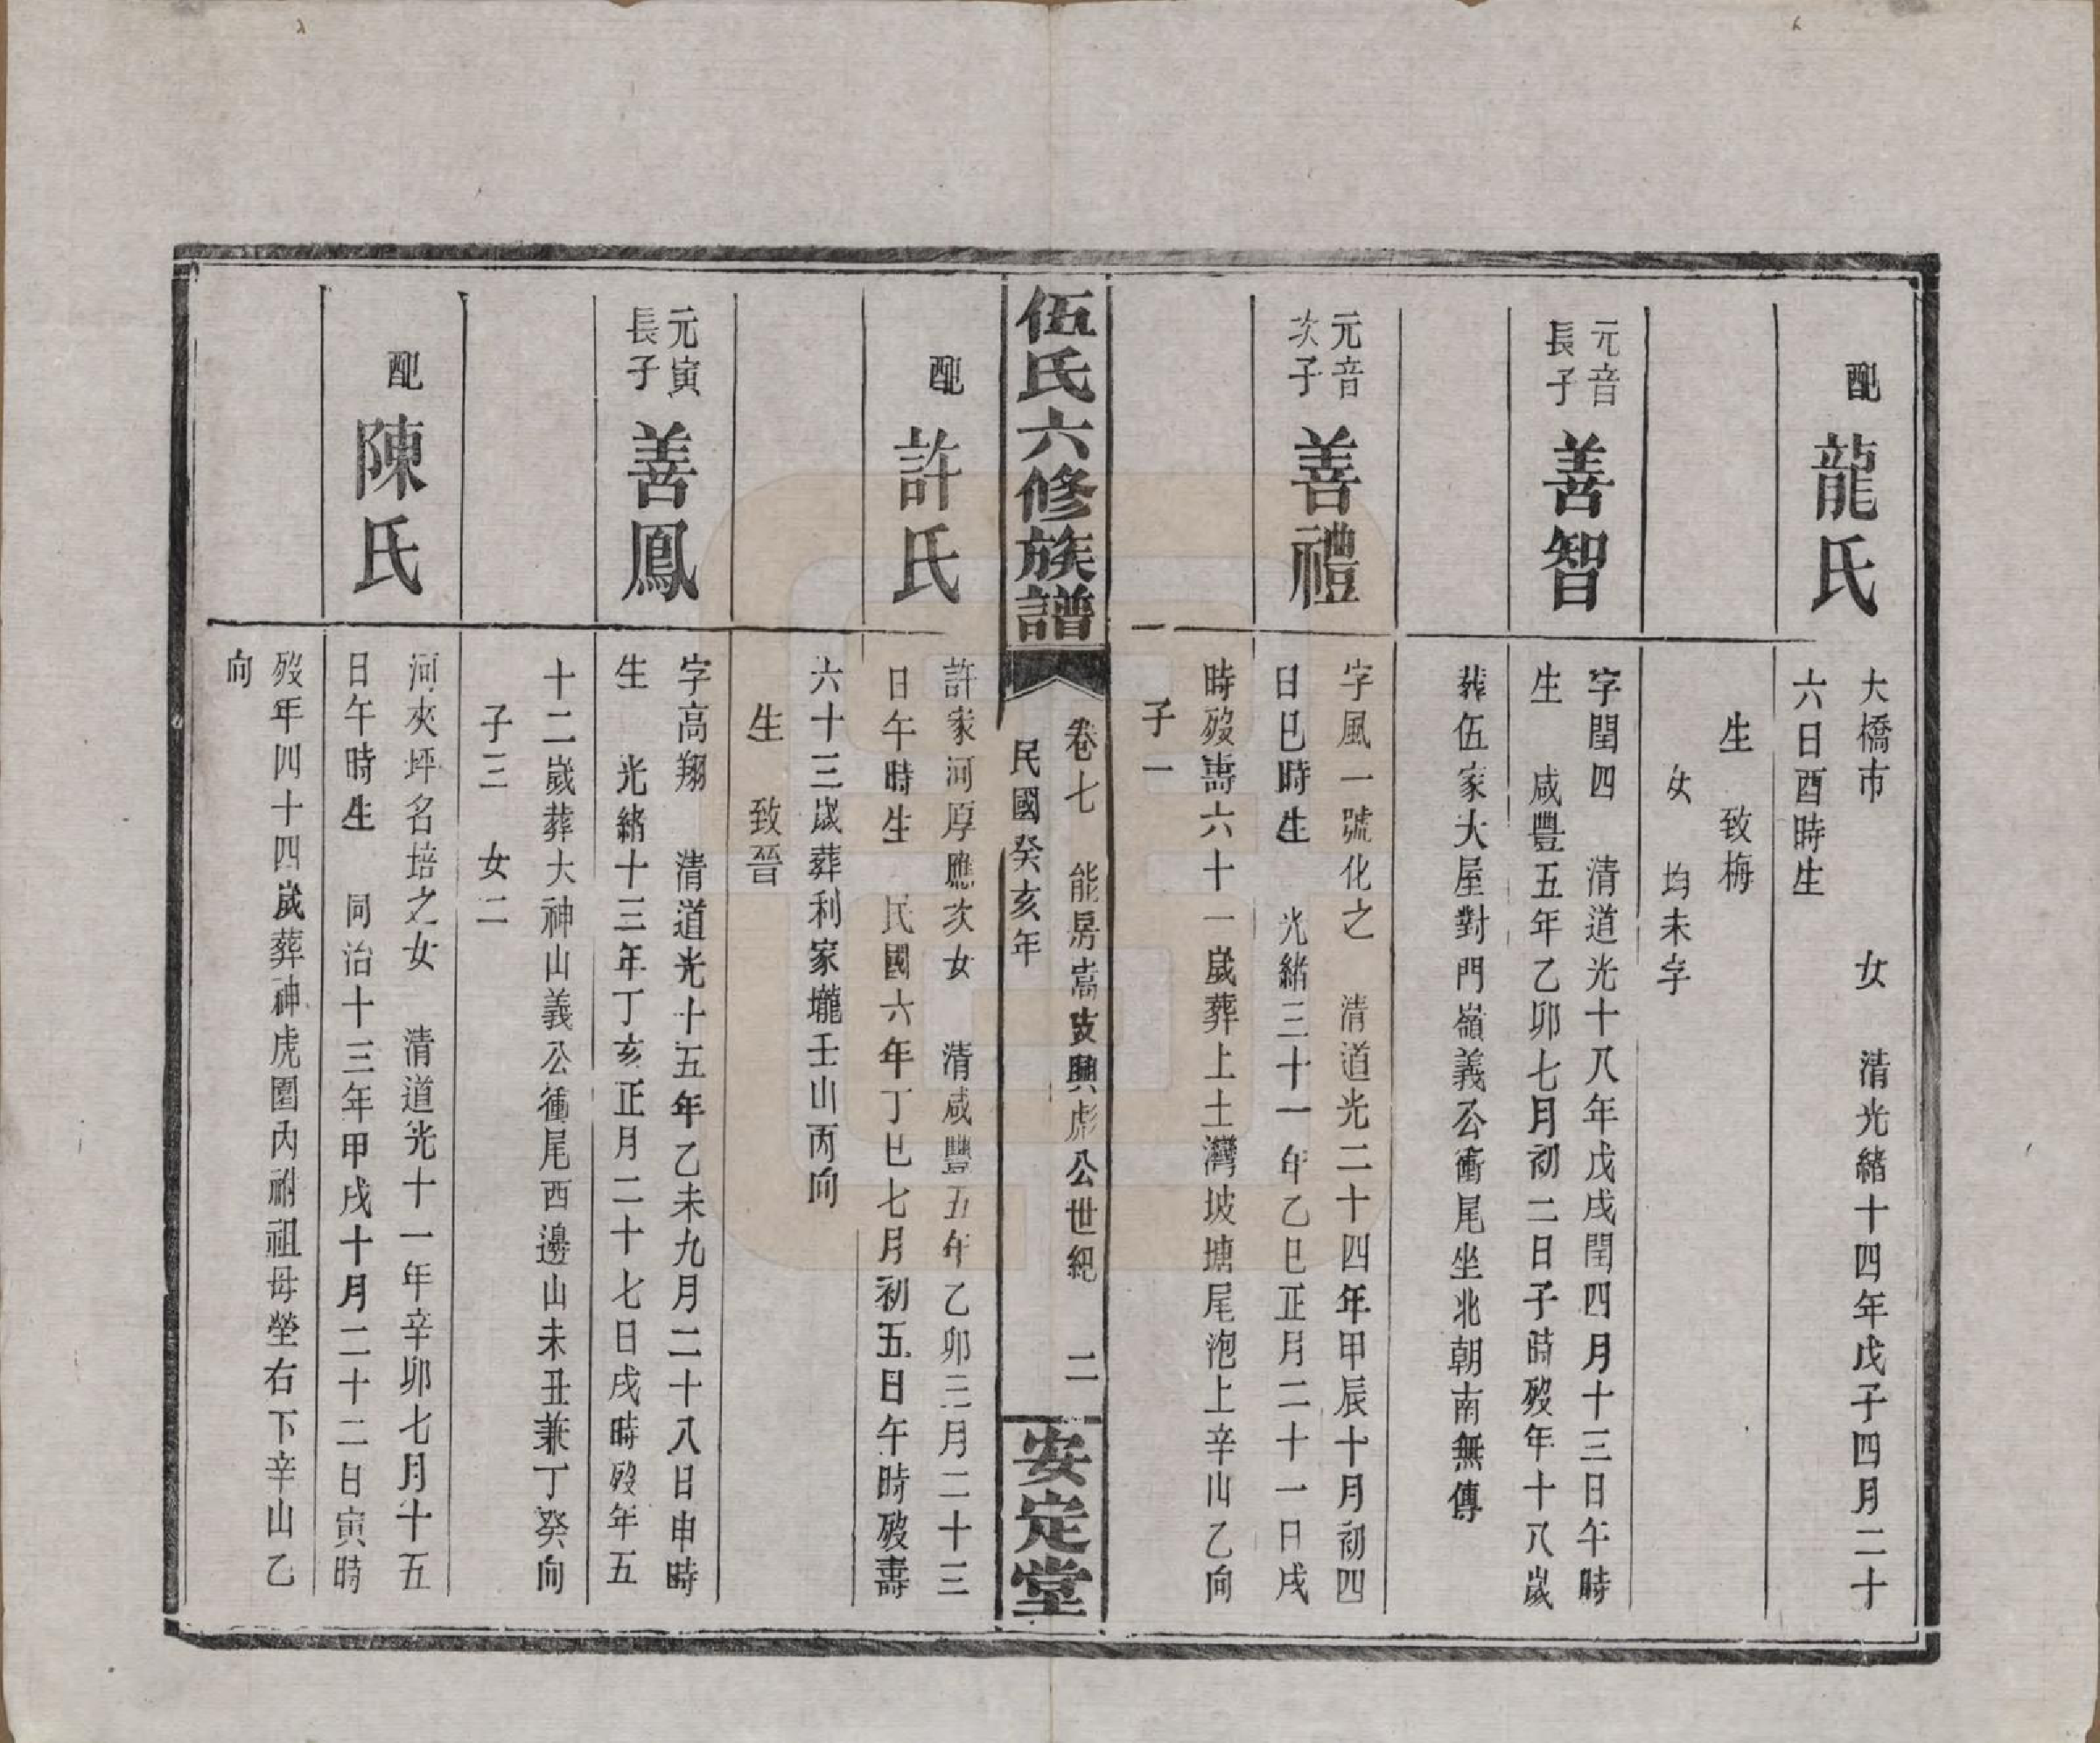 配 龍氏
大橋市 女 清光緒十四年戊子四月二十
六日酉時生
生 致梅
女 均未字
元音
長子
善智
字閏四 清道光十八年戊戌閏四月十三日午時
生 咸豐五年乙卯七月初二日子時歿年十八歲
葬伍家大屋對門嶺義公衝尾坐北朝南無傳
元音
次子
善禮
字風一號化之 清道光二十四年甲辰十月初四
日巳時生 光緒三十一年乙巳正月二十一日戌
時歿壽六十一歲葬上土灣坡塘尾泡上辛山乙向
子一
伍氏六修族譜
卷七 能房嵩支興彪公世紀 二
民國癸亥年
安定堂
配 許氏
許家河厚應次女 清咸豐五年乙卯三月二十三
日午時生 民國六年丁巳七月初五日午時歿壽
六十三歲葬利家壠壬山丙向
生 致晉
元寅
長子
善鳳
字高翔 清道光十五年乙未九月二十八日申時
生 光緒十三年丁亥正月二十七日戌時歿年五
十二歲葬大神山義公衝尾西邊山未丑兼丁癸向
子三 女二
配 陳氏
河夾坪名培之女 清道光十一年辛卯七月十五
日午時生 同治十三年甲戌十月二十二日寅時
歿年四十四歲葬神虎園內祔祖母塋右下辛山乙
向